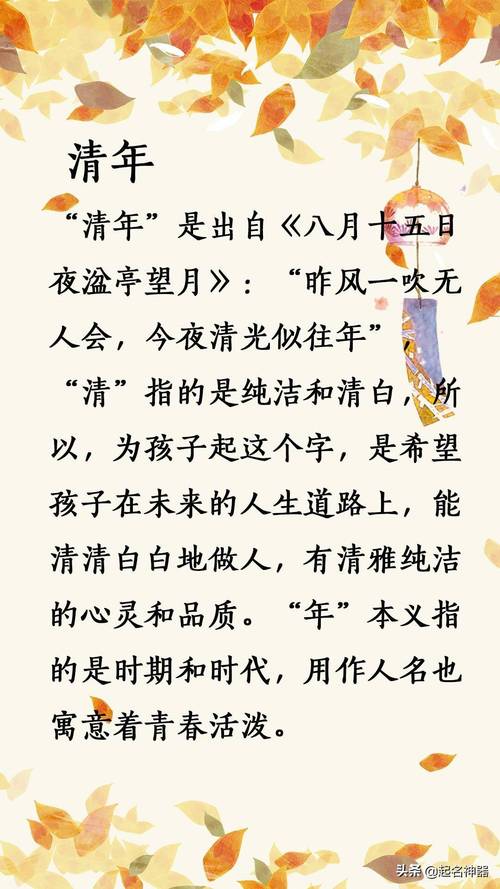 清年
“清年”是出自《八月十五日
夜湓亭望月》：“昨风一吹无
人会，今夜清光似往年”，
“清”指的是纯洁和清白，所
以，为孩子起这个字，是希望
孩子在未来的人生道路上，能
清清白白地做人，有清雅纯洁
的心灵和品质。“年”本义指
的是时期和时代，用作人名也
寓意着青春活泼。
头条@起名神器